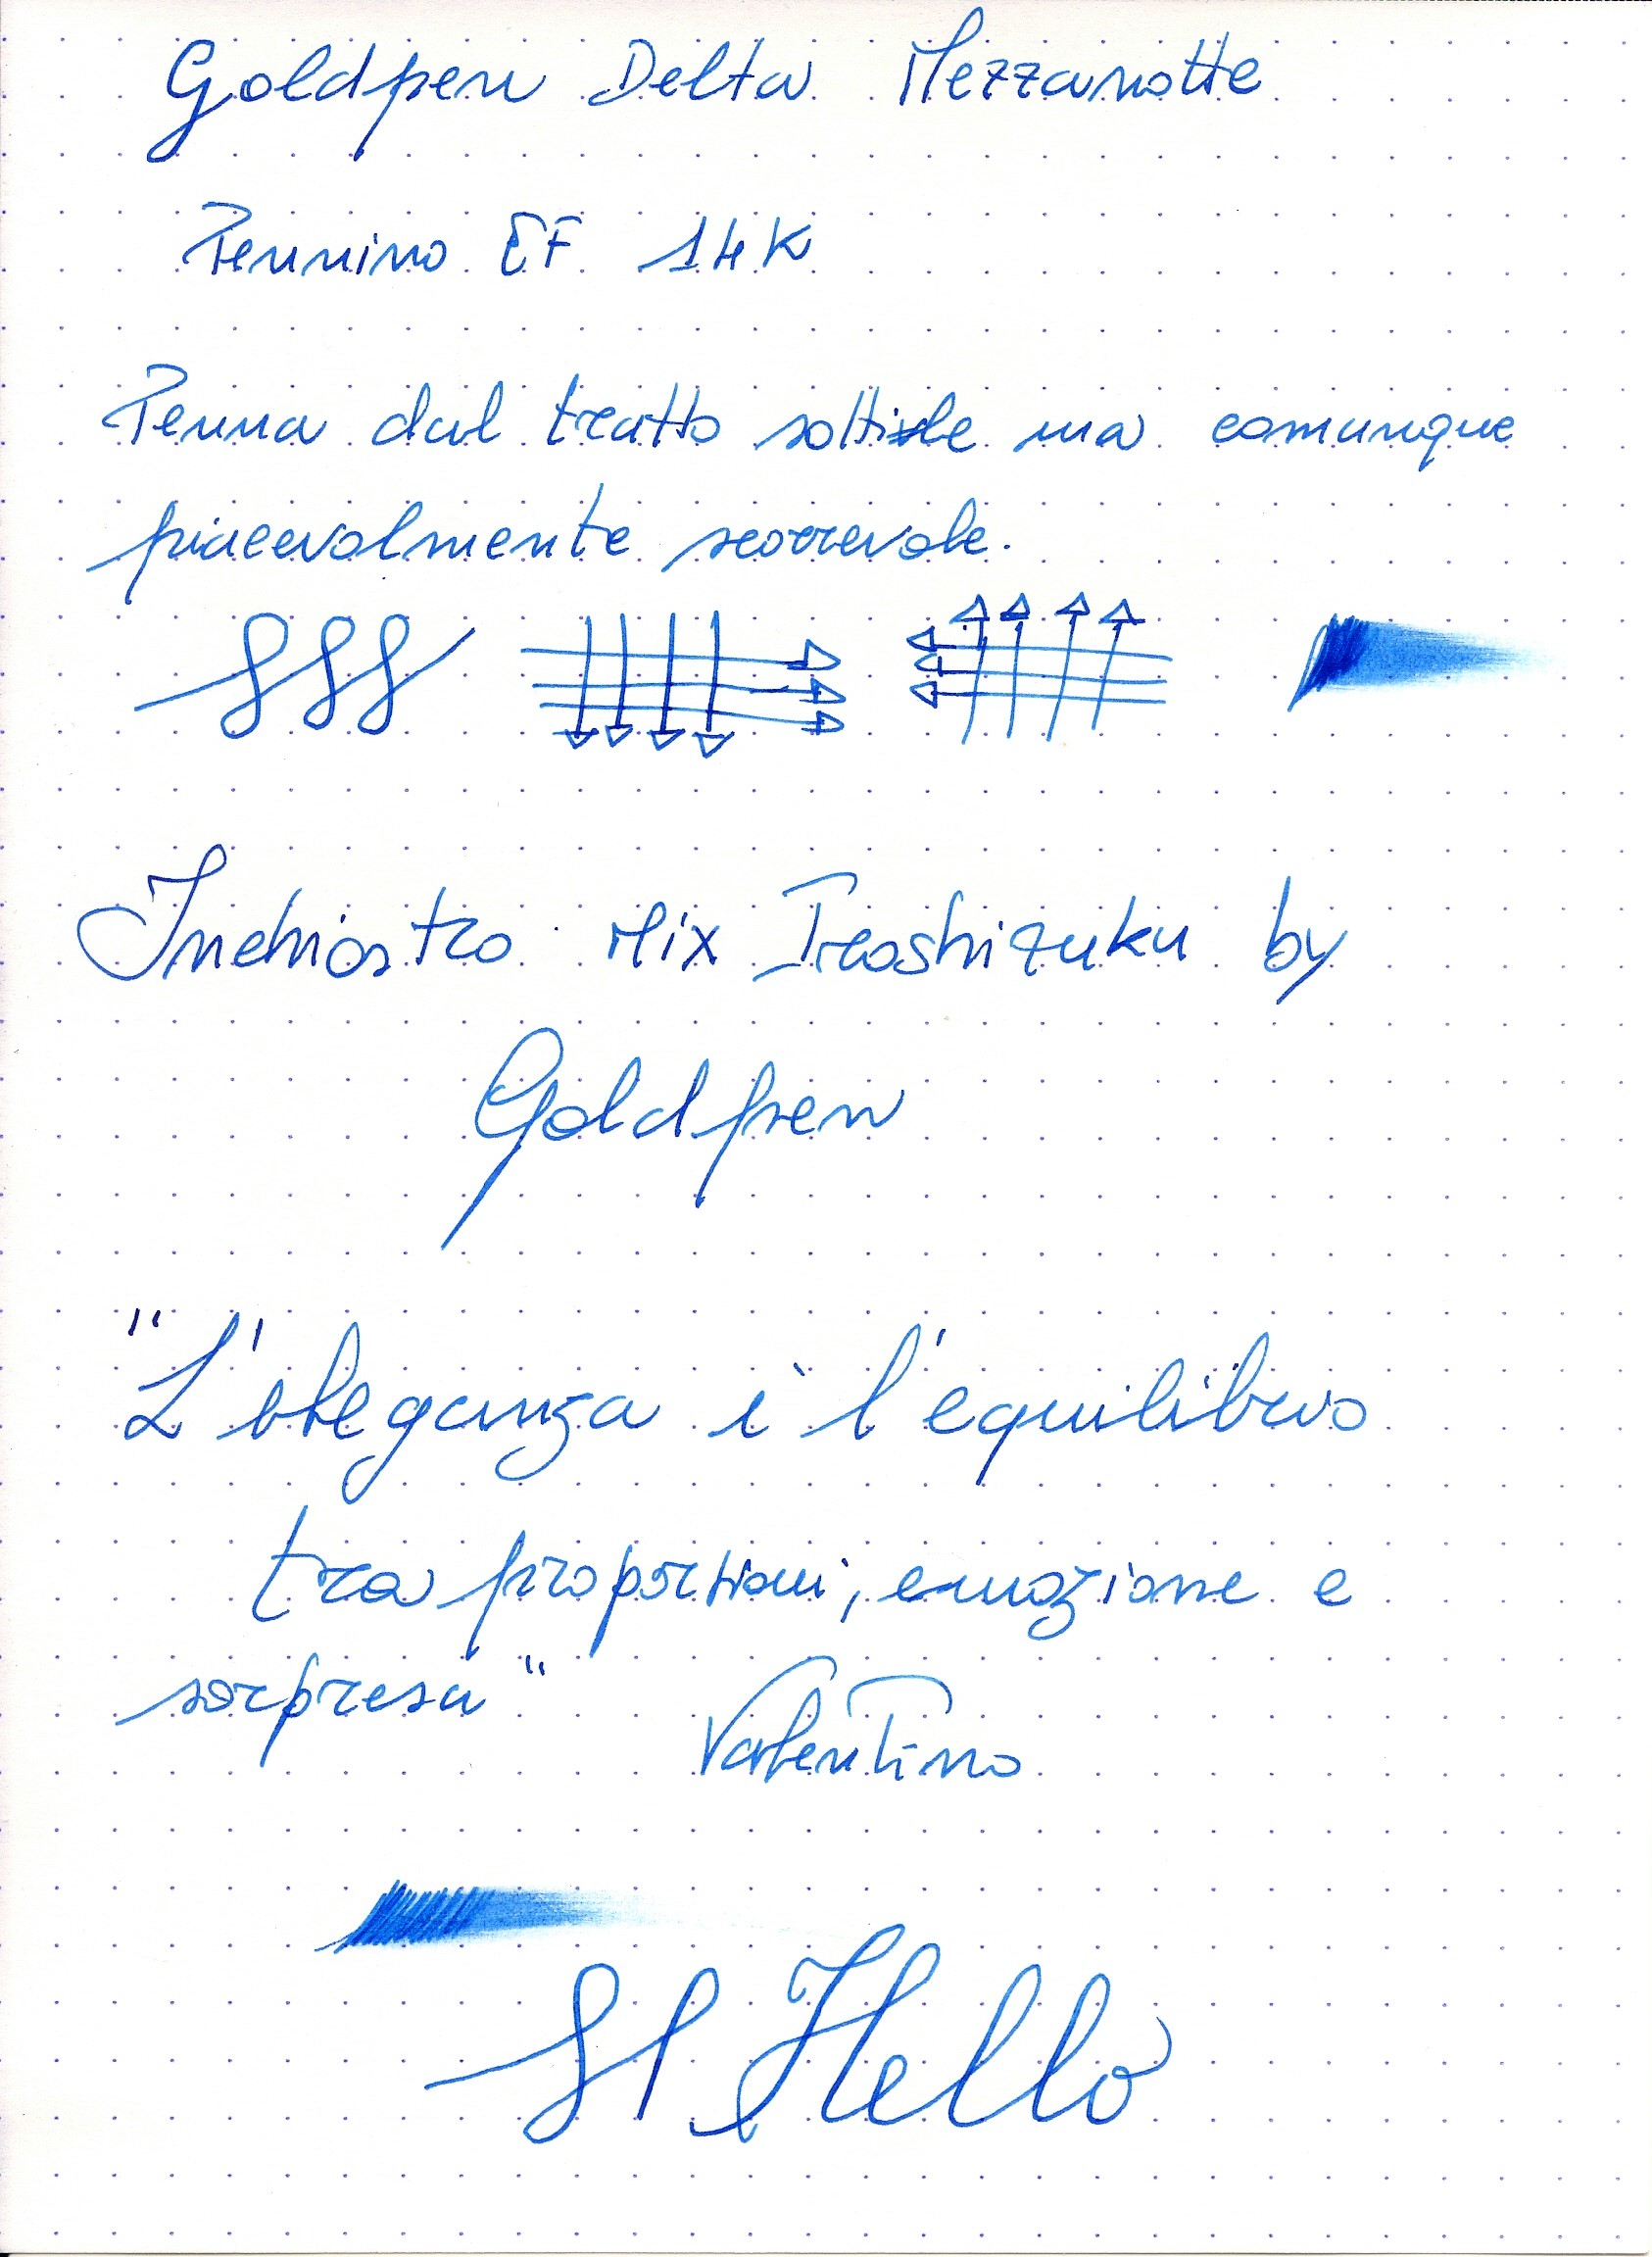 Goldpen Delta Mezzanotte
Pennino EF 14K
Penna dal tratto sottile ma comunque
piacevolmente scorrevole.
Inchiostro Mix Iroshizuku by
Goldpen
"L'eleganza è l'equilibrio
tra proporzioni, emozione e
sorpresa"
Valentino
Hello